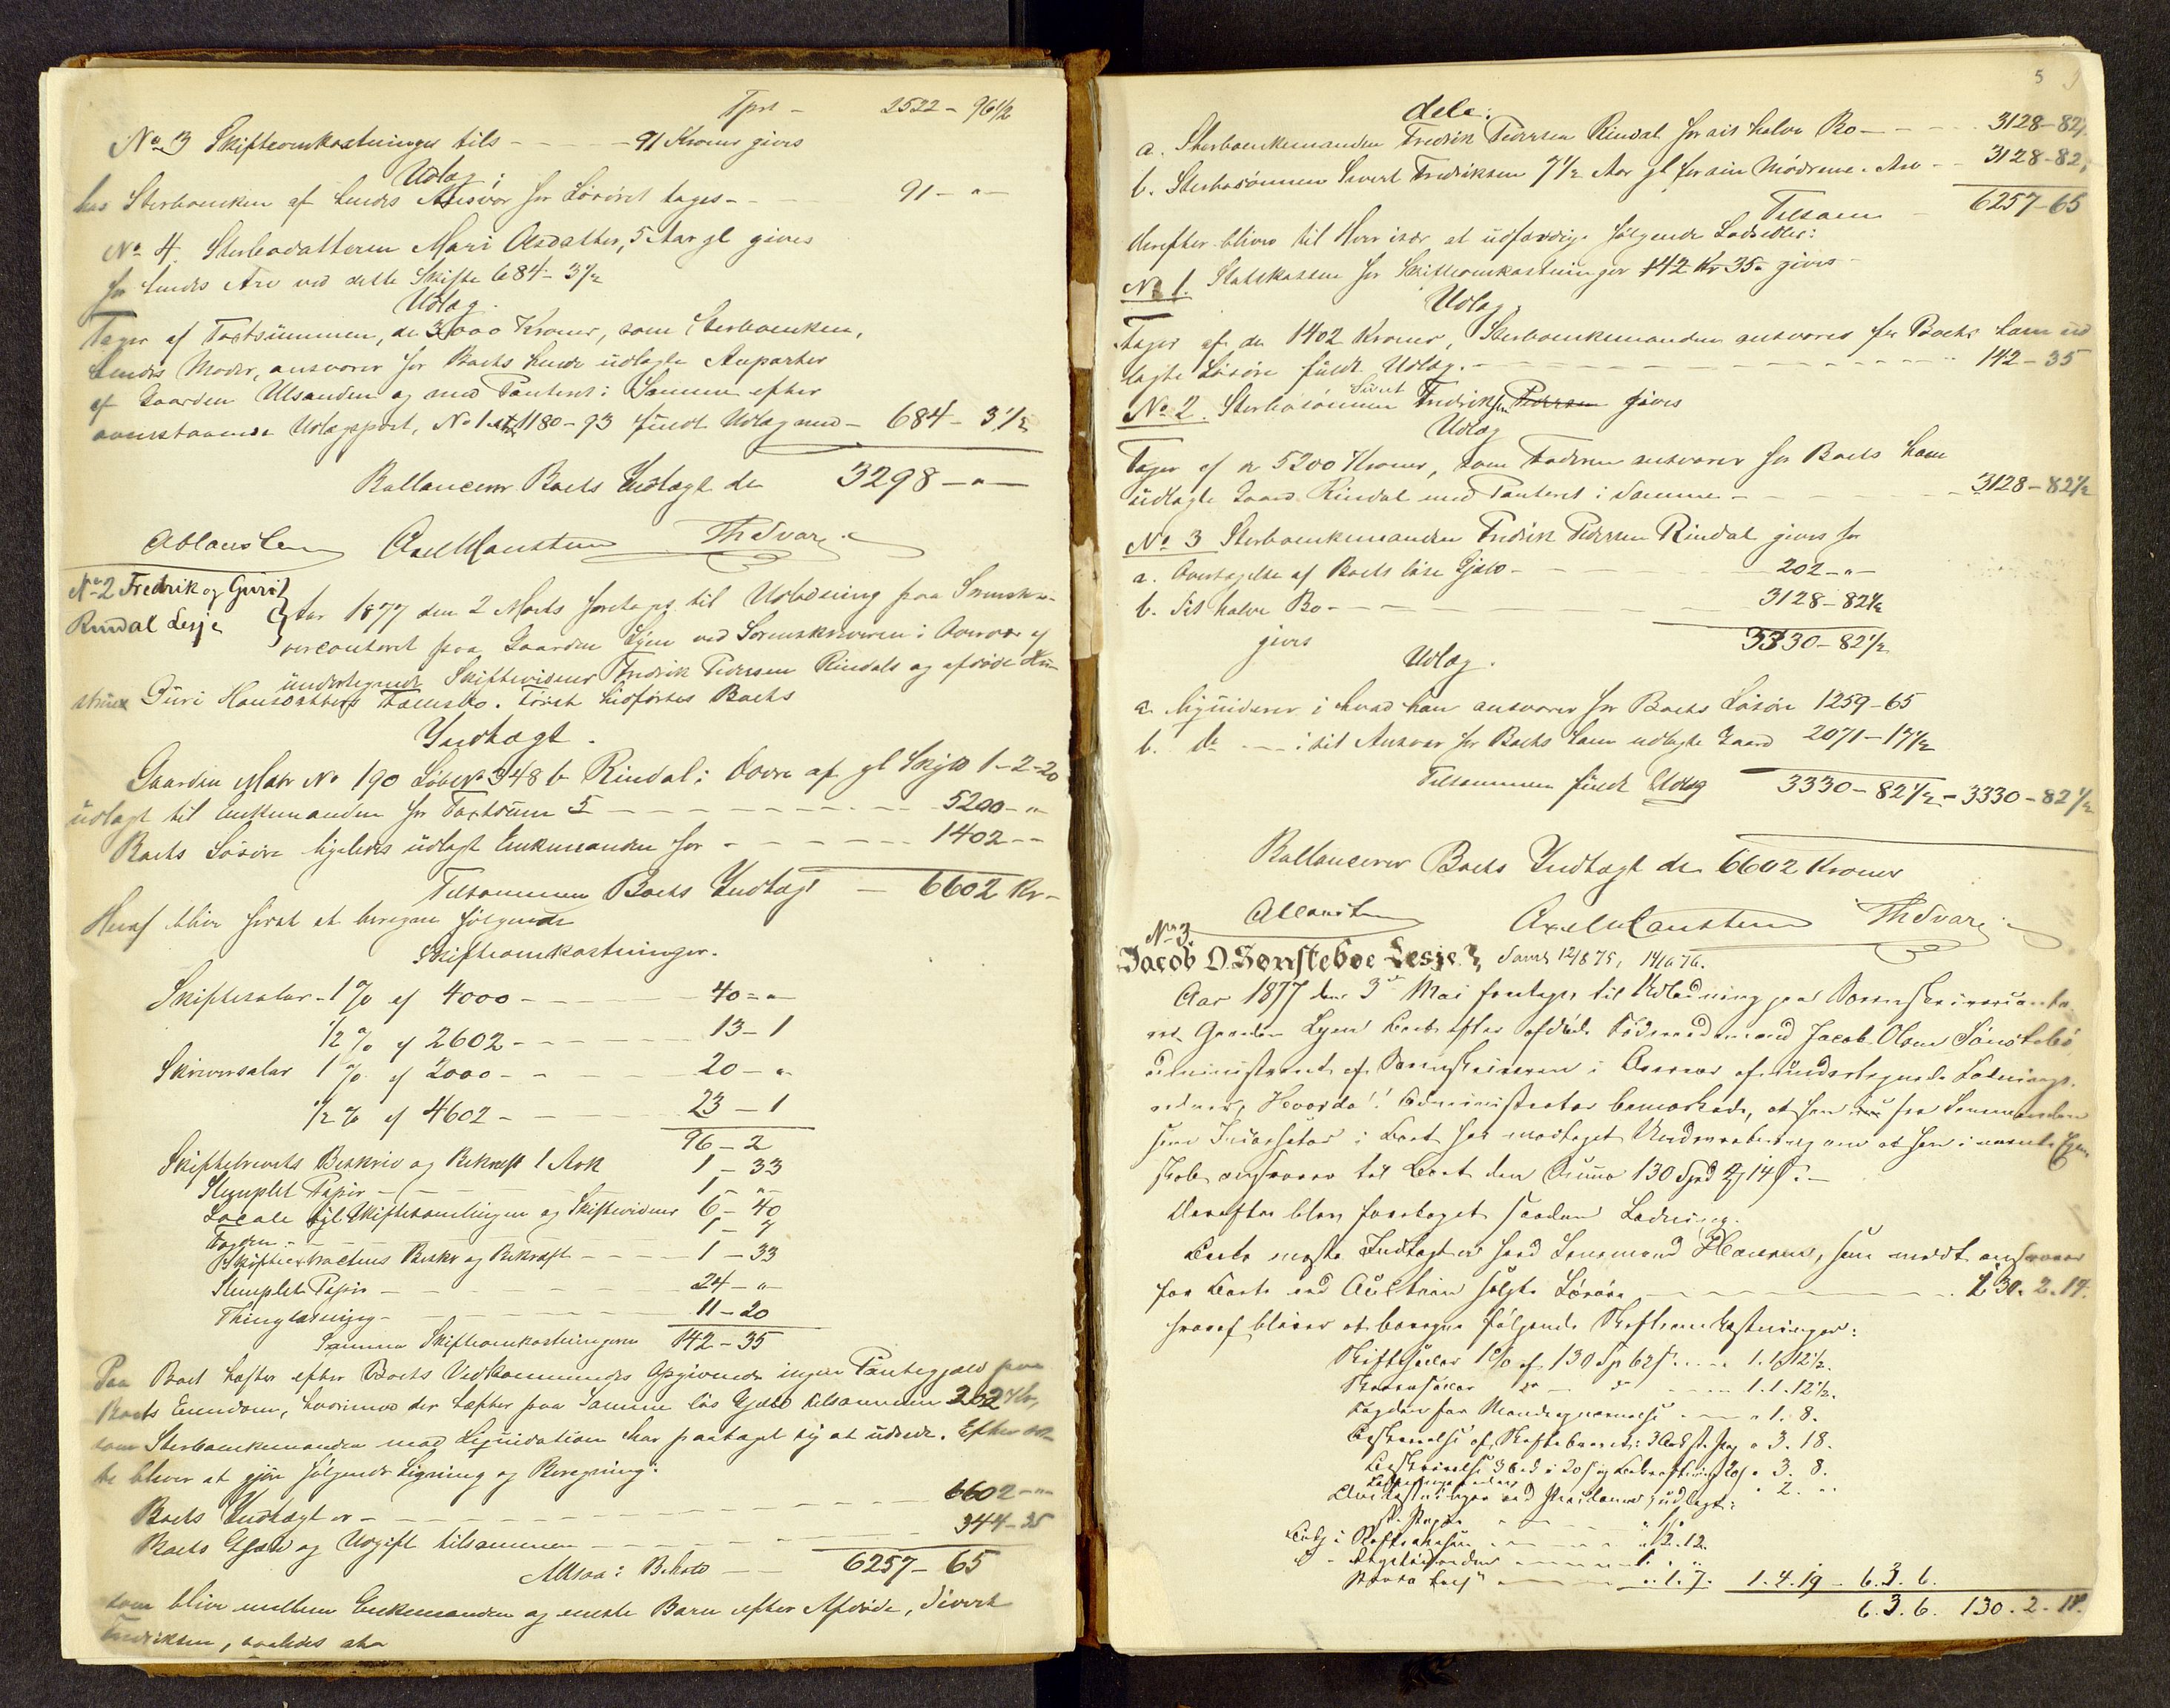 Tprt - 2522 - 96 1/2
No 3 Skifteomkostninger tils - - - - 91 Kroner gives
Udlæg:
hos Sterboenken af hendes Ansvar for Løsøret tages - - 91 - " -
No 4. Sterbodatteren Mari Olsdatter, 5 Aar gl gives
for hendes Arv ved dette Skifte 684 - 3 1/2
Udlæg.
Tager af Taxtsummen, de 3000 Kroner, som Sterboenken,
hendes Moder, ansvarer for Boets hende udlagte Anparter
af Gaarden Ulsanden og med Panteret i Samme efter
ovenstaaende Udlægspost, No 1 1180 - 93 fuldt Udlæg med - 684 - 3 1/2
Ballancerer Boets Indtægt de 3298 - " -
Axel Mausten Th Svare
No 2 Fredrik og Guri
Rindal Lesje
Aar 1877 den 2 Marts foretoges til Udlodning paa Sorenskri-
vercontoret paa Gaarden Lyen ved Sorenskriveren i Overvær af
undertegnede Skiftevidner Fredrik Pedersen Rindals og afdøde Hu-
strue Guri Hansdatters Fællesbo. Først hidførtes Boets
Indtægt.
Gaarden Matr No 190 Løbe No 348 b Rindal i Dovre af gl Skyld 1-2-20
udlagt til Enkemanden for Taxtsum - - - - 5200 - "
Boets Løsøre ligeledes udlagt Enkemanden for - - - - 1402 - -
Tilsammen Boets Indtægt - 6602 Kr -
Heraf bliver først at beregne følgende
Skifteomkostninger.
Skiftesalær - 1 % af 4000 - - - 40 - "
1/2 % af 2602 - - - 13 - 1
Skriversalær 1 % af 2000 - - - 20 - "
1/2 % af 4602 - - - 23 - 1
96 - 2
Skiftebrevets Beskriv og Bekræft 1 Ark 1 - 33
Stemplet Papir - - - 1 - "
Locale til Skiftesamlingen og Skiftevidner 6 - 40
Fogden - - -
Skifteextractens Beskr og Bekræft - - - 1 - 33
Stemplet Papir - - - 24 - "
Thinglæsning - - - 11 - 20
Samme Skifteomkostningerne 142 - 35
Paa Boet hæfter efter Boets Vedkommendes Opgivende ingen Pantegjæld paa
Boets Eiendom, hvorimod der hæfter paa Samme løs Gjæld tilsammen 202 Kr,
som Sterboenkemanden mod Liqvidation har paataget sig at udrede. Efter det-
te bliver at gjøre følgende Ligning og Beregning:
Boets Indtægt er - - - 6602 - " -
Boets Gjæld og Udgift tilsammen - - - 344 - 35
Altsaa: Behold - - 6257 - 65
som bliver mellem Enkemanden og eneste Barn efter Afdøde, Sivert
Fredriksen, saaledes at
5
dele:
a. Sterboenkemanden Fredrik Pedersen Rindal for sit halve Bo - - - - 3128 - 82 1/2
b. Sterbosønnen Sivert Fredriksen 7 1/2 Aar gl for sin Mødrene Arv - - 3128 - 82 1/2
Tilsam - 6257 - 65
Herefter bliver til Hver især at udfærdige følgende Lodsedler:
No 1. Statskassen for Skifteomkostninger 142 Kr 35 gives -
Udlæg.
Tager af de 1402 Kroner, Sterboenkemanden ansvarer for Boets ham ud
lagte Løsøre fuldt Udlæg. - - - 142 - 35
No 2. Sterbosønnen Sivert Fredriksen Pedersen gives
Udlæg
Tager af de 5200 Kroner, som Faderen ansvarer for Boets ham
udlagte Gaard Rindal med Panteret i Samme - - - 3128 - 82 1/2
No 3 Sterboenkemanden Fredrik Pedersen Rindal gives for
a. Overtagelse af Boets løse Gjæld - - - 202 - " -
b. Sit halve Bo - - - 3128 - 82 1/2
gives 3330 - 82 1/2
Udlæg.
a. liqviderer i hvad han ansvarer for Boets Løsøre 1259 - 65
b. do - - i sit Ansvar for Boets ham udlagte Gaard 2071 - 17 1/2
Tilsammen fuldt Udlæg 3330 - 82 1/2 - 3330 - 82 1/2
Ballancerer Boets Indtægt de 6602 Kroner
Axel Mausten Th Svare
No 3.
Jacob O. Sønsteboe Lesje. Saml 12/8 75, 14/6 76.
Aar 1877 den 3die Mai foretoges til Udlodning paa Sorenskrivercontoret
paa Gaarden Lyen Boet efter afdøde Føderaadsmand Jacob Olsen Sønstebø
administreret af Sorenskriveren i Overvær af undertegnede Lodnings-
vidner, Hvorda! Administrator bemærkede, at han fra Lensmanden
som Incassator i Boet har modtaget Underretning om at han i nævnte Egen
skab ansvarer til Boet den Summa 130 Spd 2 14 s. -
Derefter blev foretaget saadan Lodning.
Boets eneste Indtægt er hvad Lensmand Hansen, som meldt ansvarer
for Boets ved Auction solgte Løsøre - - - 130. 2. 14.
hvoraf bliver at beregne følgende Skifteomkostninger:
Skiftesalær 1 % af 130 Sp 62 s - - - 1. 1. 12 1/2.
Skriversalær do - do - - - 1. 1. 12 1/2.
Fogden for - - - " 1. 8.
" 3. 18.
" 3. 8.
" 2. "
" 2. 12.
" 1. 7. 1. 4. 19 - 6. 3. 6.
6. 3. 6. 130. 2. 14.